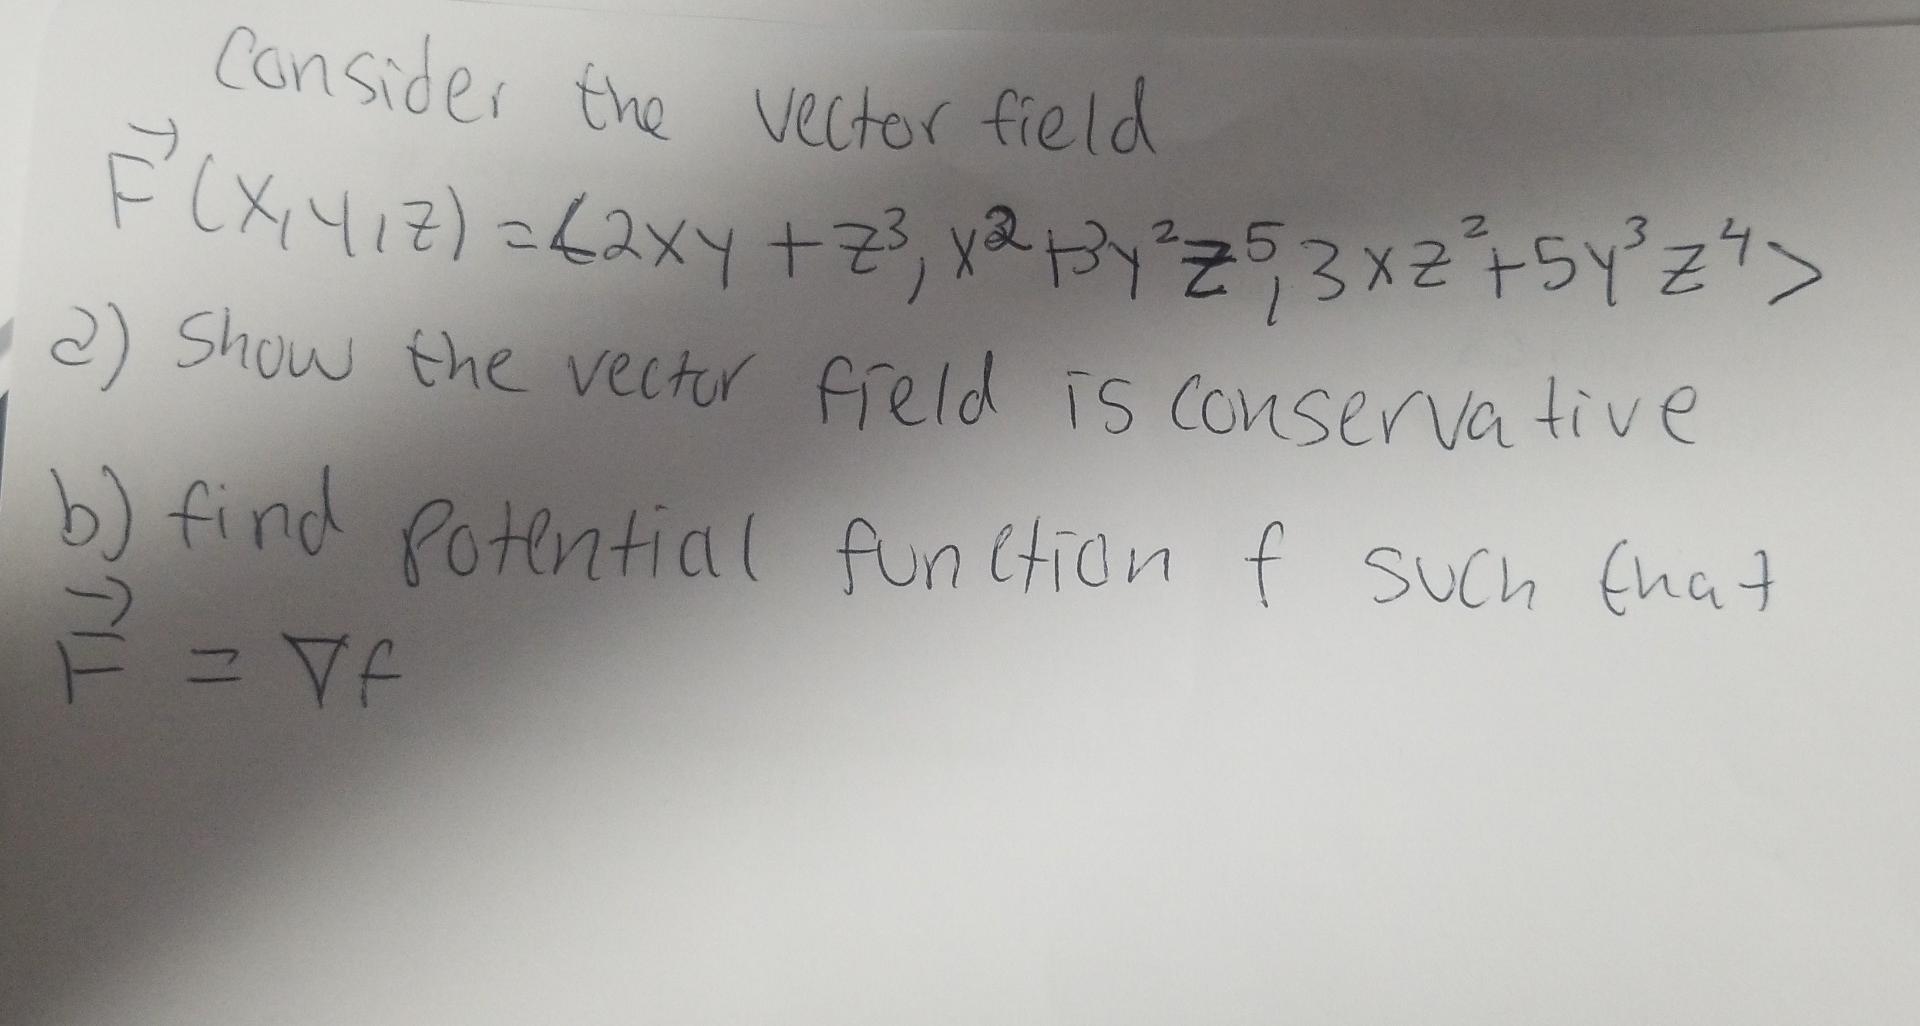 Consider the vector field
F⃗(x,y,z) = <2xy + z³, x² + 3y²z⁵, 3xz² + 5y³z⁴>
a) Show the vector field is conservative
b) find potential function f such that
F⃗ = ∇f